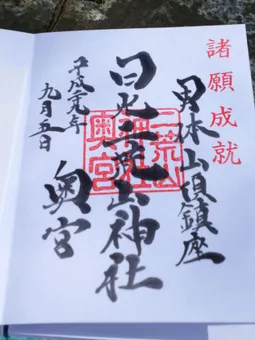 諸願成就
男体山頂鎮座
日光二荒山神社
奥宮
二荒山
神社
奥宮
平成
九月五日